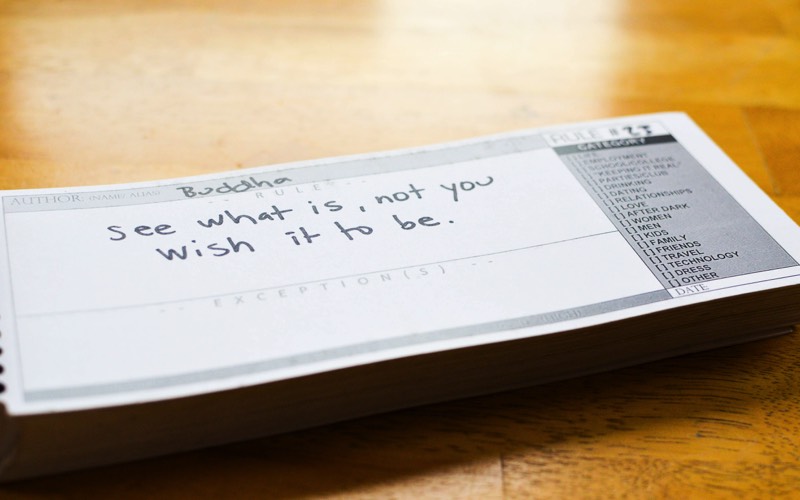 RULE #
AUTHOR (NAME/ALIAS) Buddha
RULE
See what is, not you
wish it to be.
EXCEPTION(S)
CATEGORY
[ ] LIFE
[ ] EMPLOYMENT
[ ] SCHOOL/COLLEGE
[ ] "KEEPING IT REAL"
[ ] PARTIES/CLUB
[ ] DRINKING
[ ] DATING
[ ] RELATIONSHIPS
[ ] LOVE
[ ] AFTER DARK
[ ] WOMEN
[ ] MEN
[ ] KIDS
[ ] FAMILY
[ ] FRIENDS
[ ] TRAVEL
[ ] TECHNOLOGY
[ ] DRESS
[ ] OTHER
DATE